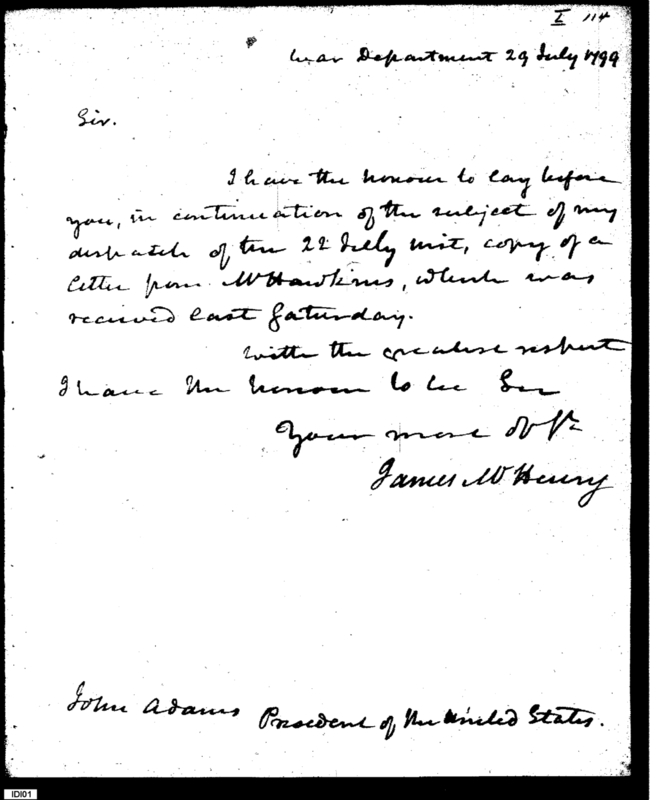 I 114
War Department 29 July 1799
Sir.
I have the honour to lay before
you, in continuation of the subject of my
dispatch of the 22 July inst, copy of a
letter from Mr Hawkins, which was
received last Saturday.
With the greatest respect
I have the honour to be Sir
Your most Obt
James McHenry
John Adams President of the United States.
IDI01